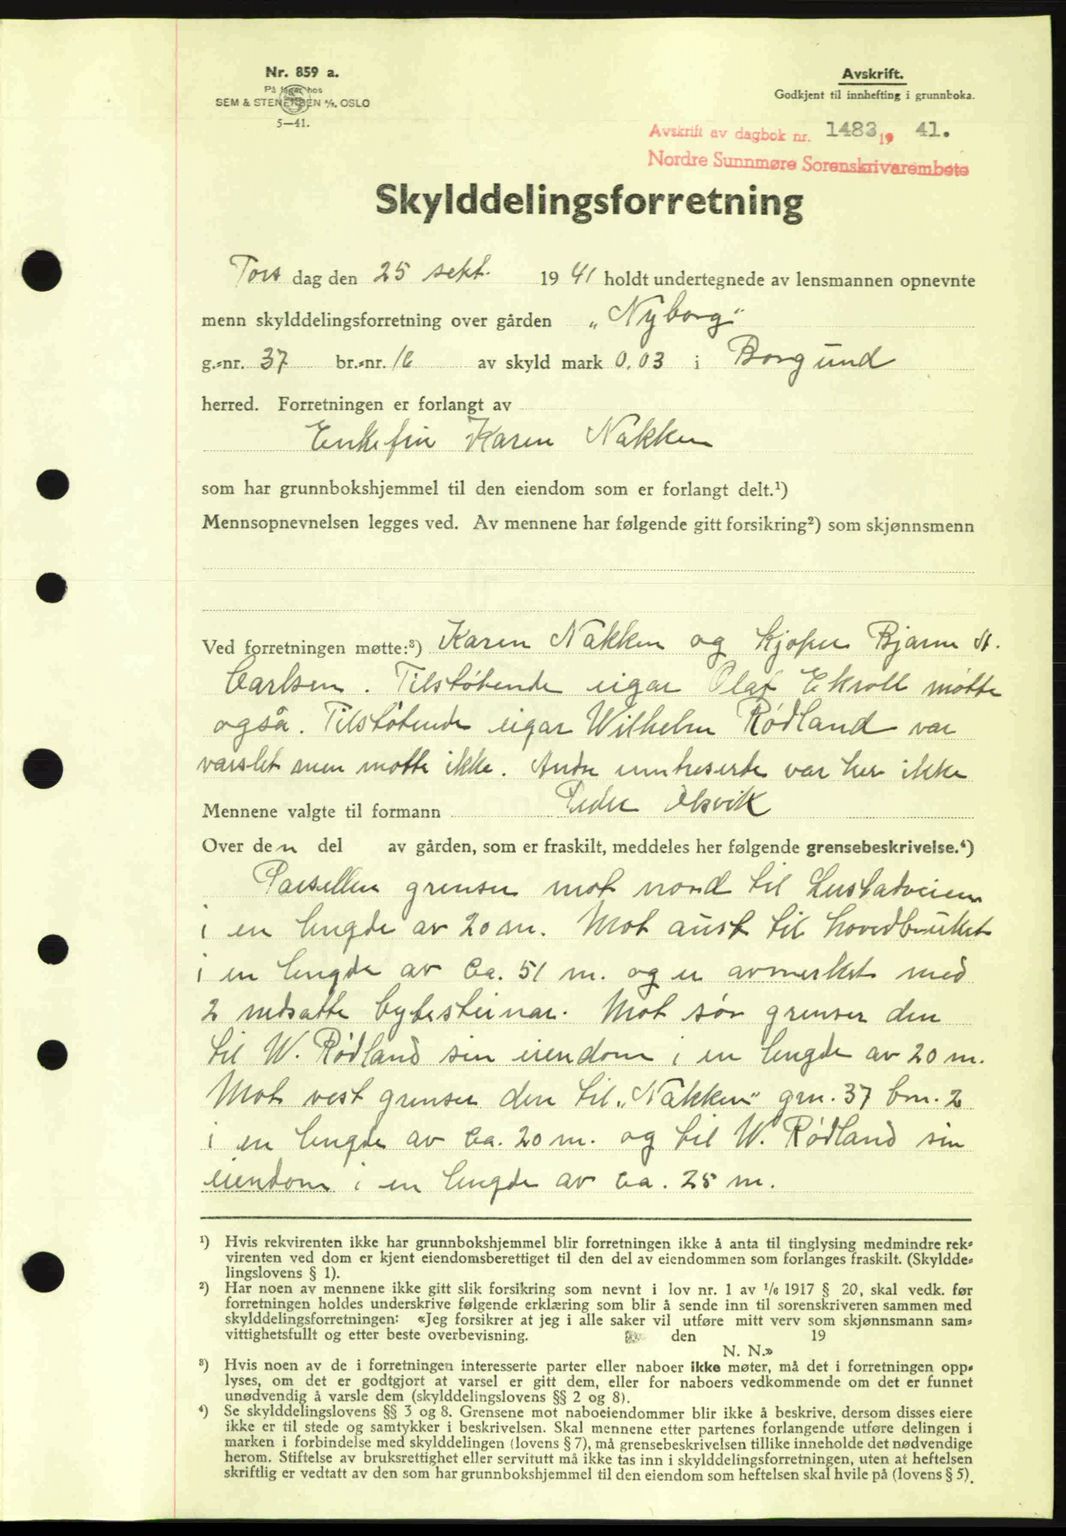 Nr. 859 a.
På lager hos
SEM & STENERSEN A/S. OSLO
5—41.
Avskrift.
Godkjent til innhefting i grunnboka.
Avskrift av dagbok nr. 1483 19 41.
Nordre Sunnmøre Sorenskrivarembete
Skylddelingsforretning
Tors dag den 25 sept. 19 41 holdt undertegnede av lensmannen opnevnte
menn skylddelingsforretning over gården „Nyborg"
g.-nr. 37 br.-nr. 16 av skyld mark 0,03 i Borgund
herred. Forretningen er forlangt av
Enkefru Karen Nakken
som har grunnbokshjemmel til den eiendom som er forlangt delt.¹)
Mennsopnevnelsen legges ved. Av mennene har følgende gitt forsikring²) som skjønnsmenn
Ved forretningen møtte:³) Karen Nakken og kjøper Bjarne
Carlsen. Tilstøtende eigar Olaf Ekroll møtte
også. Tilstøtende eigar Wilhelm Rødland var
varslet men møtte ikke. Andre var her ikke
Mennene valgte til formann Peder
Over den del av gården, som er fraskilt, meddeles her følgende grensebeskrivelse.⁴)
Parsellen grenser mot nord til
i en lengde av 20 m. Mot aust til hovedbruket
i en lengde av ca. 51 m. og er avmerket med
2 nedsatte bytesteinar. Mot sør grenser den
til W. Rødland sin eiendom i en lengde av 20 m.
Mot vest grenser den til „Nakken" grn. 37 brn. 2
i en lengde av ca. 20 m. og til W. Rødland sin
eiendom i en lengde av ca. 25 m.
¹) Hvis rekvirenten ikke har grunnbokshjemmel blir forretningen ikke å anta til tinglysing medmindre rek-
virenten ved dom er kjent eiendomsberettiget til den del av eiendommen som forlanges fraskilt. (Skyldde-
lingslovens § 1).
²) Har noen av mennene ikke gitt slik forsikring som nevnt i lov nr. 1 av 1/6 1917 § 20, skal vedk. før
forretningen holdes underskrive følgende erklæring som blir å sende inn til sorenskriveren sammen med
skylddelingsforretningen: «Jeg forsikrer at jeg i alle saker vil utføre mitt verv som skjønnsmann sam-
vittighetsfullt og etter beste overbevisning. den 19
N. N.»
³) Hvis noen av de i forretningen interesserte parter eller naboer ikke møter, må det i forretningen opp-
lyses, om det er godtgjort at varsel er gitt dem, eller for naboers vedkommende om det er funnet
unødvendig å varsle dem (skylddelingslovens §§ 2 og 8).
⁴) Se skylddelingslovens §§ 3 og 8. Grensene mot naboeiendommer blir ikke å beskrive, dersom disses eiere
ikke er til stede og samtykker i beskrivelsen. Skal mennene etter partenes forlangende utføre delingen i
marken i forbindelse med skylddelingen (lovens § 7), må grensebeskrivelsen tillike inneholde det nødvendige
herom. Stiftelse av bruksrettighet eller servitutt må ikke tas inn i skylddelingsforretningen, uten at heftelsen
skriftlig er vedtatt av den som har grunnbokshjemmel til den eiendom som heftelsen skal hvile på (lovens § 5).